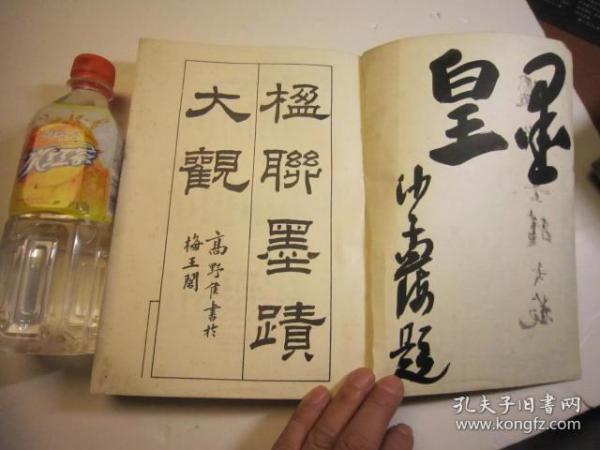 墨皇
沙孟海題
楹聯墨蹟
大觀
高野侯書於
梅王閣
孔夫子旧书网
www.kongfz.com